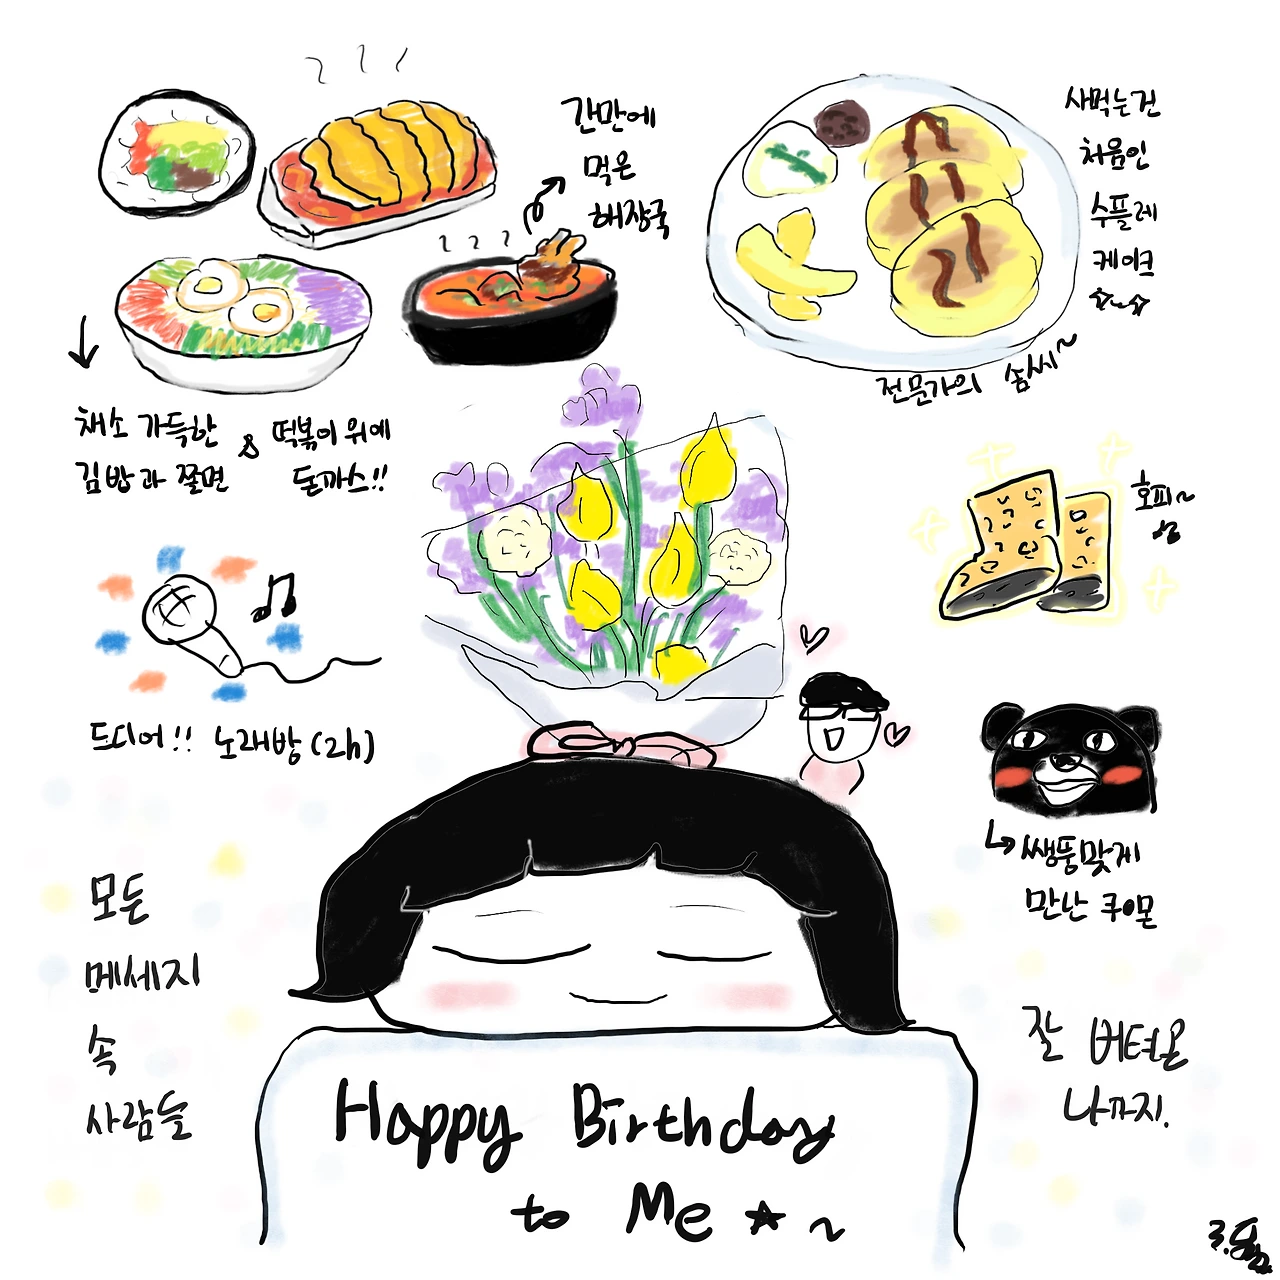 간만에
먹은
해장국
사먹는건
처음인
수플레
케이크
전문가의 솜씨~
채소 가득한
김밥과 쫄면
&
떡볶이 위에
돈까스!!
호피~
드디어!! 노래방(2h)
쌩뚱맞게
만난 쿠마몬
모든
메세지
속
사람들
잘 버텨온
나까지.
Happy Birthday
to Me ☆ ~